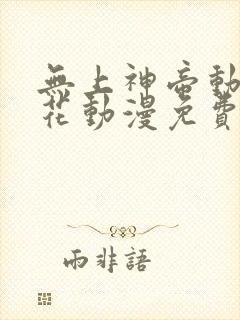 無上神帝動
花動漫免費
雨非語